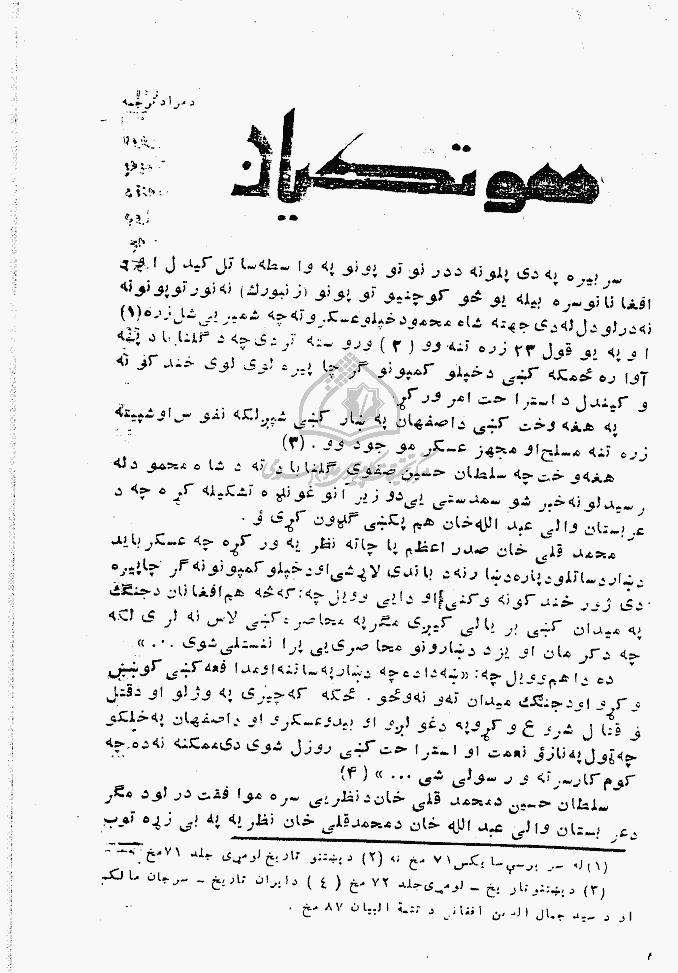 د مراد ترجمه
هوتکیان
سر بیره په دی پلونه ددر نو تو پونو په وا سطه سا تل کیدل او
افغا نانو سره بیله یو څو کوچنیو تو پونو (ز نبورك) نه نور توپونو نه
نه در لو دل له دی جهته شاه محمود خپلو عسکرو ته چه شمیر یی شل زره (۱)
او په یو قول ۲۳ زره تنه وو (۲) ورو سته تر دی چه د گلنا با د پڅه
آوا ره ځمکه کښی دخپلو کمپونو گر چا پیره لوی لوی خند قو نه
و کیندل د استرا حت امر ور کړ
په هغه وخت کښی داصفهان په ښار کښی شپږ لکه نفوس او شپیته
زره تنه مسلح او مجهز عسکر مو جود وو . (۳)
هغه وخت چه سلطان حسین صفوی گلنا باد ته د شاه محمود له
ر سیدلو نه خبر شو سمد ستی یی دو زیر آنو غونډه تشکیله کړه چه د
عر بستان والی عبد الله خان هم پکښی گډون کړی ؤ .
محمد قلی خان صدر اعظم پا چا ته نظر یه ور کړه چه عسکر باید
د ښار د سا تلو د پاره د ښا ر نه د باندی لاړ شی او د خپلو کمپونو نه گر چا پیره
دی ژور خند قو نه وکنی او دایی وویل چه: که څه هم افغا نان د جنگ
په میدان کښی بر یا لی کیږی مگر په محا صره کښی لاس نه لر ی لکه
چه د کر مان او یزد د ښارو نو محا صری یی پرا نشستلی شوی ... »
ده دا هم وویل چه: « ښه داده چه د ښار په سا تنه او مدا فعه کښی کو ښښ
و کړو او د جنگ میدان ته و نه وځو . ځکه که چیری په وژلو او د قتل
و قتا ل شرو ع و کړو په دغو لږو او بیدو عسکرو او د اصفهان په خلکو
چه ټول په نازؤ نعمت او استرا حت کښی روزل شوی دی ممکنه نه ده چه
کوم کار سر ته و ر سولی شی ... » (۴)
سلطان حسین د محمد قلی خان د نظر یی سره موا فقت در لود مگر
د عر بستان والی عبد الله خان د محمد قلی خان نظر یه په بی زړه توب
(۱) له سر پرسی سا یکس ۷۱ مخ نه (۲) د پښتنو تاریخ لومړی جلد ۷۱ مخ
(۳) د پښتنو تار یخ – لومړی جلد ۷۲ مخ (۴) د ایران تاریخ – سرجان ما لکم
او د سید جمال الدین افغانی د تتمة البیان ۸۷ مخ .